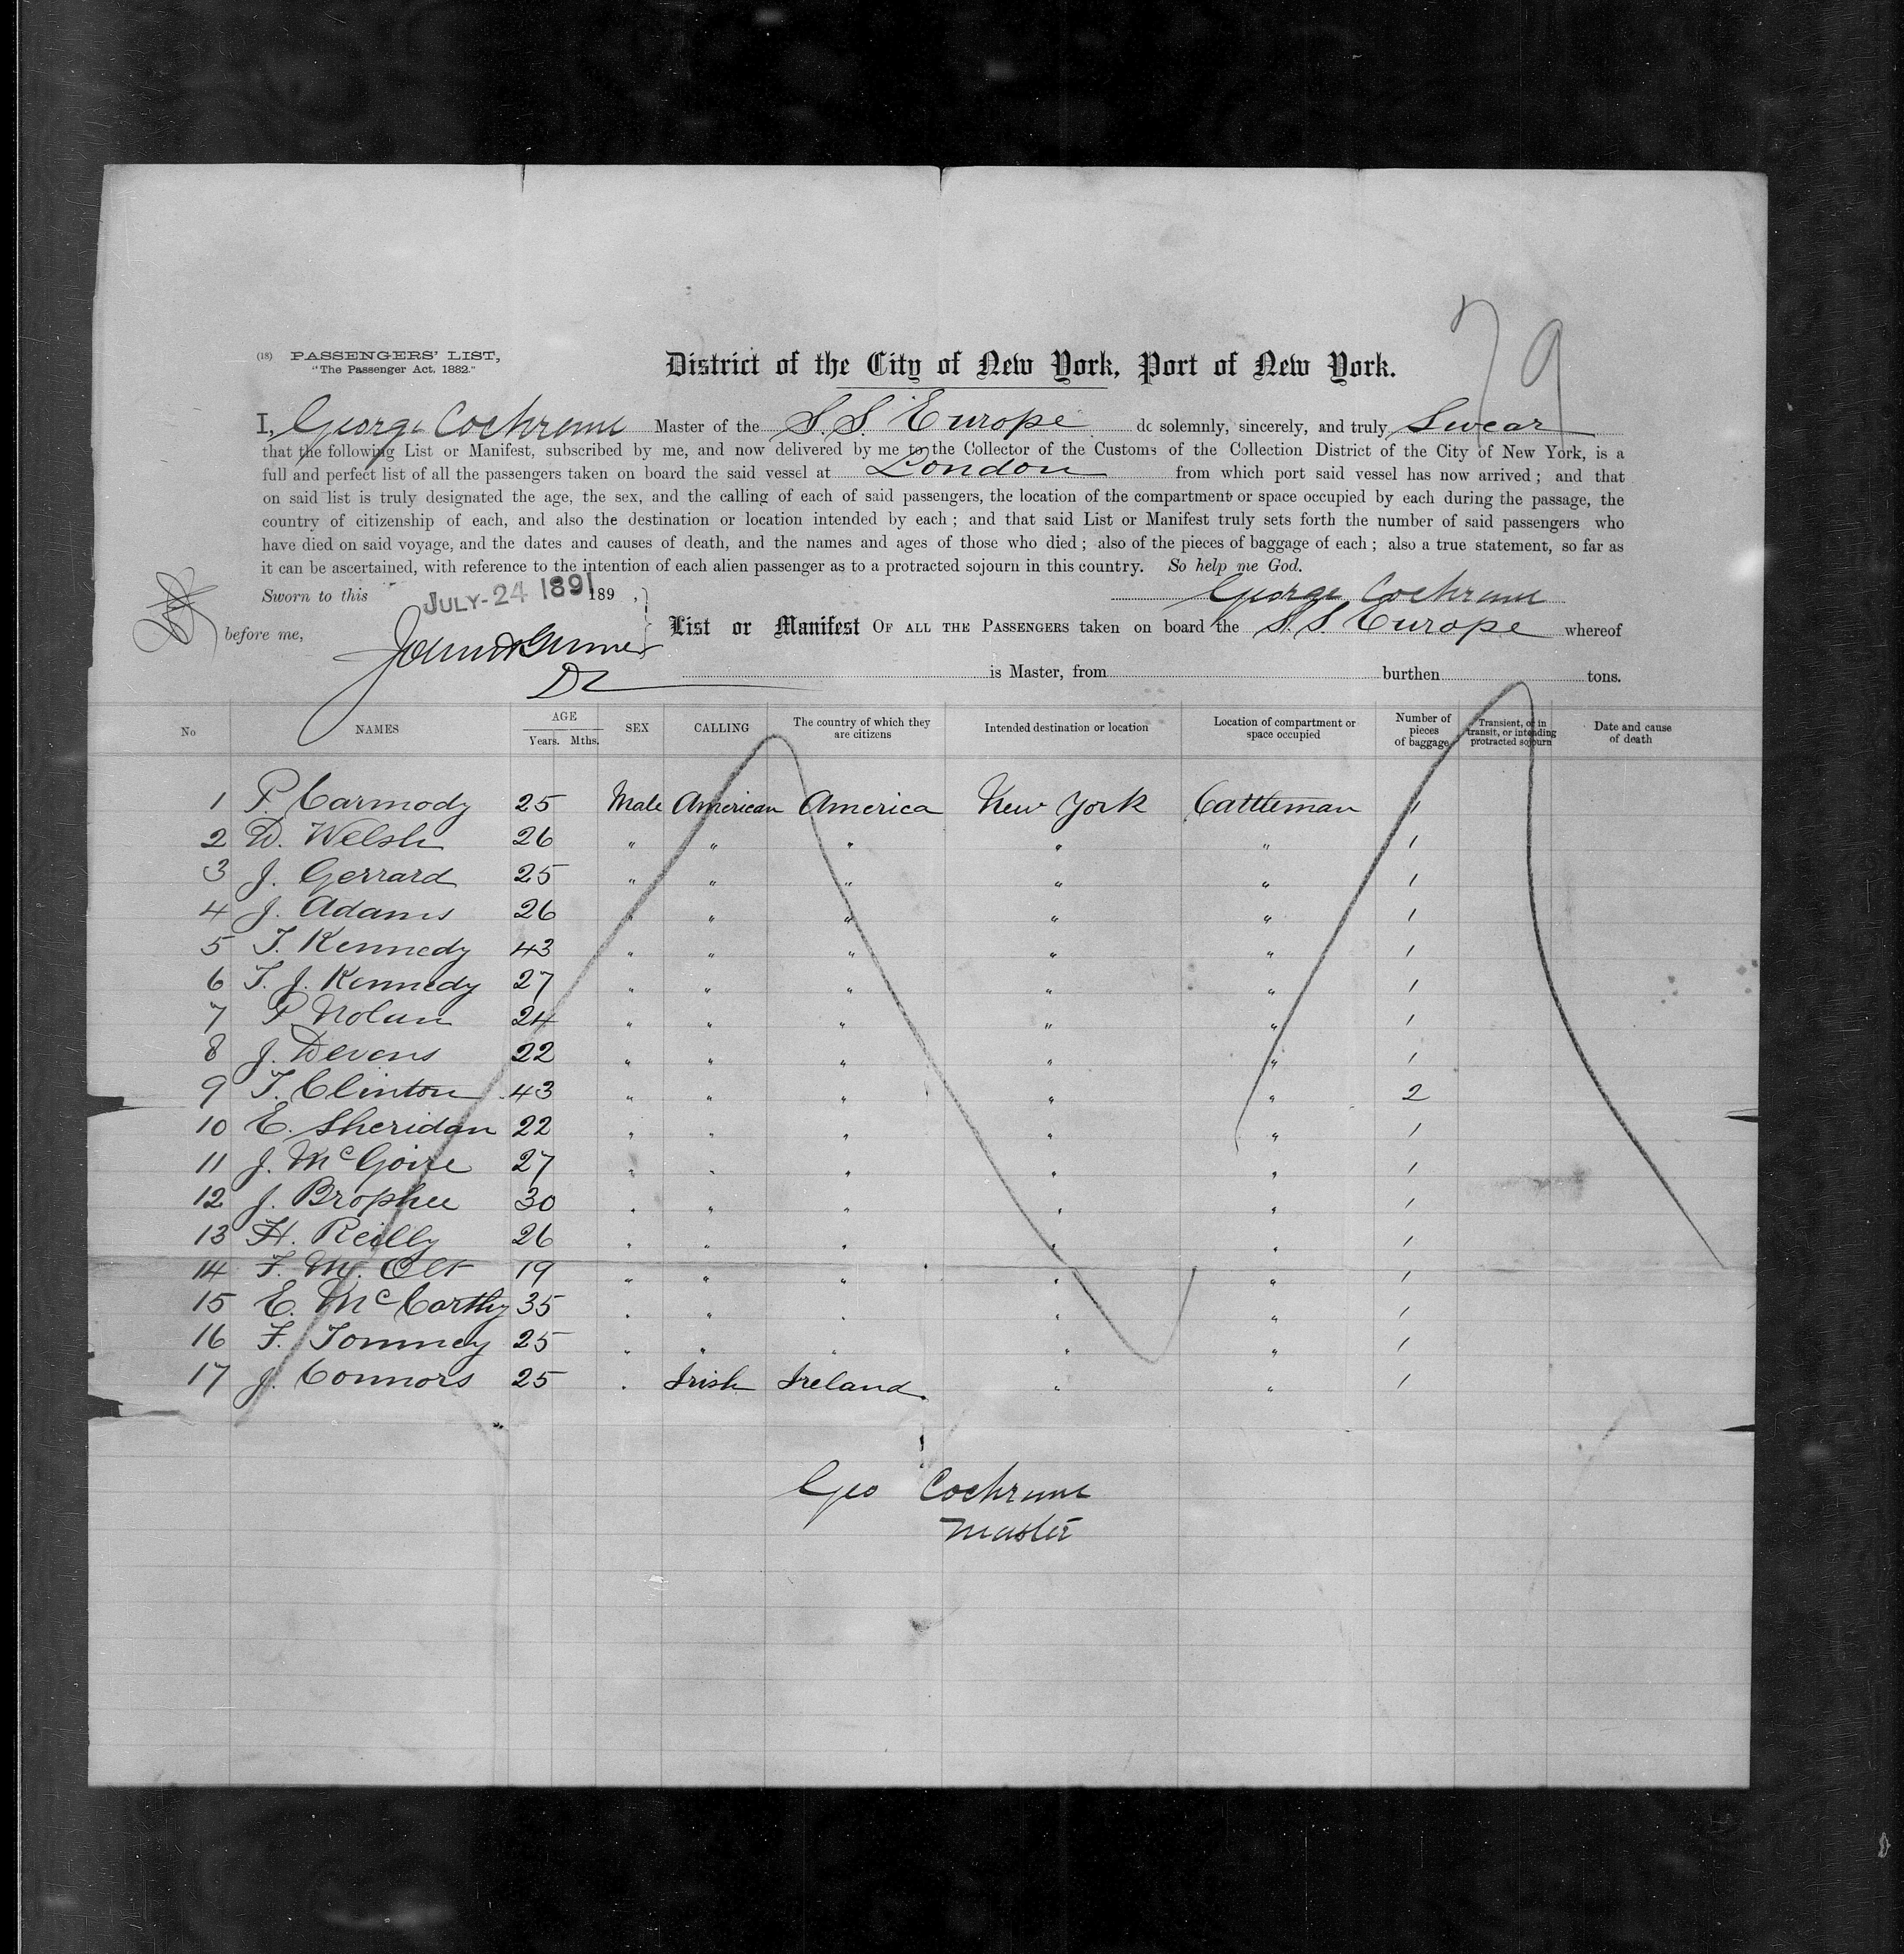 79
(18) PASSENGERS' LIST,
"The Passenger Act, 1882."
District of the City of New York, Port of New York.
I, George Cochrane Master of the S.S. Europe do solemnly, sincerely, and truly Swear
that the following List or Manifest, subscribed by me, and now delivered by me to the Collector of the Customs of the Collection District of the City of New York, is a
full and perfect list of all the passengers taken on board the said vessel at London from which port said vessel has now arrived; and that
on said list is truly designated the age, the sex, and the calling of each of said passengers, the location of the compartment or space occupied by each during the passage, the
country of citizenship of each, and also the destination or location intended by each; and that said List or Manifest truly sets forth the number of said passengers who
have died on said voyage, and the dates and causes of death, and the names and ages of those who died; also of the pieces of baggage of each; also a true statement, so far as
it can be ascertained, with reference to the intention of each alien passenger as to a protracted sojourn in this country. So help me God.
Sworn to this JULY-24 1891 189 ,
George Cochrane
before me,
List or Manifest OF ALL THE PASSENGERS taken on board the S.S. Europe whereof
is Master, from burthen tons.
No NAMES AGE Years. Mths. SEX CALLING The country of which they are citizens Intended destination or location Location of compartment or space occupied Number of pieces of baggage Transient, or in transit, or intending protracted sojourn Date and cause of death
1 P. Carmody 25 Male American America New York Cattleman 1
2 D. Welsh 26 " " " " " 1
3 J. Gerrard 25 " " " " " 1
4 J. Adams 26 " " " " " 1
5 T. Kennedy 43 " " " " " 1
6 T. J. Kennedy 27 " " " " " 1
7 P. Nolan 24 " " " " " 1
8 J. Devens 22 " " " " " 1
9 T. Clinton 43 " " " " " 2
10 E. Sheridan 22 " " " " " 1
11 J. McGoire 27 " " " " " 1
12 J. Brophee 30 " " " " " 1
13 H. Reilly 26 " " " " " 1
14 F. M. 19 " " " " " 1
15 E. McCarthy 35 " " " " " 1
16 F. Tommey 25 " " " " " 1
17 J. Connors 25 " Irish Ireland. " " 1
Geo Cochrane
Master